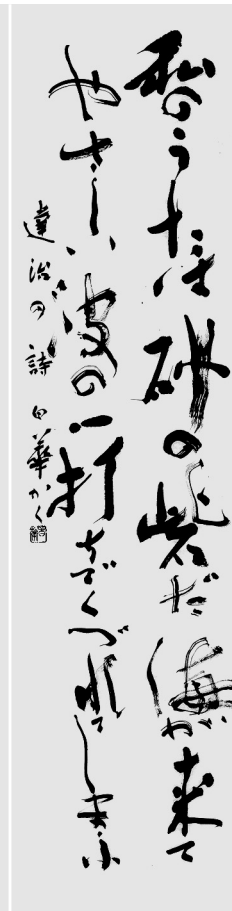 私のうたは砂の砦だ海が来て
やさしい波の一打ちでくづしてしまふ
達治の詩 白華かく